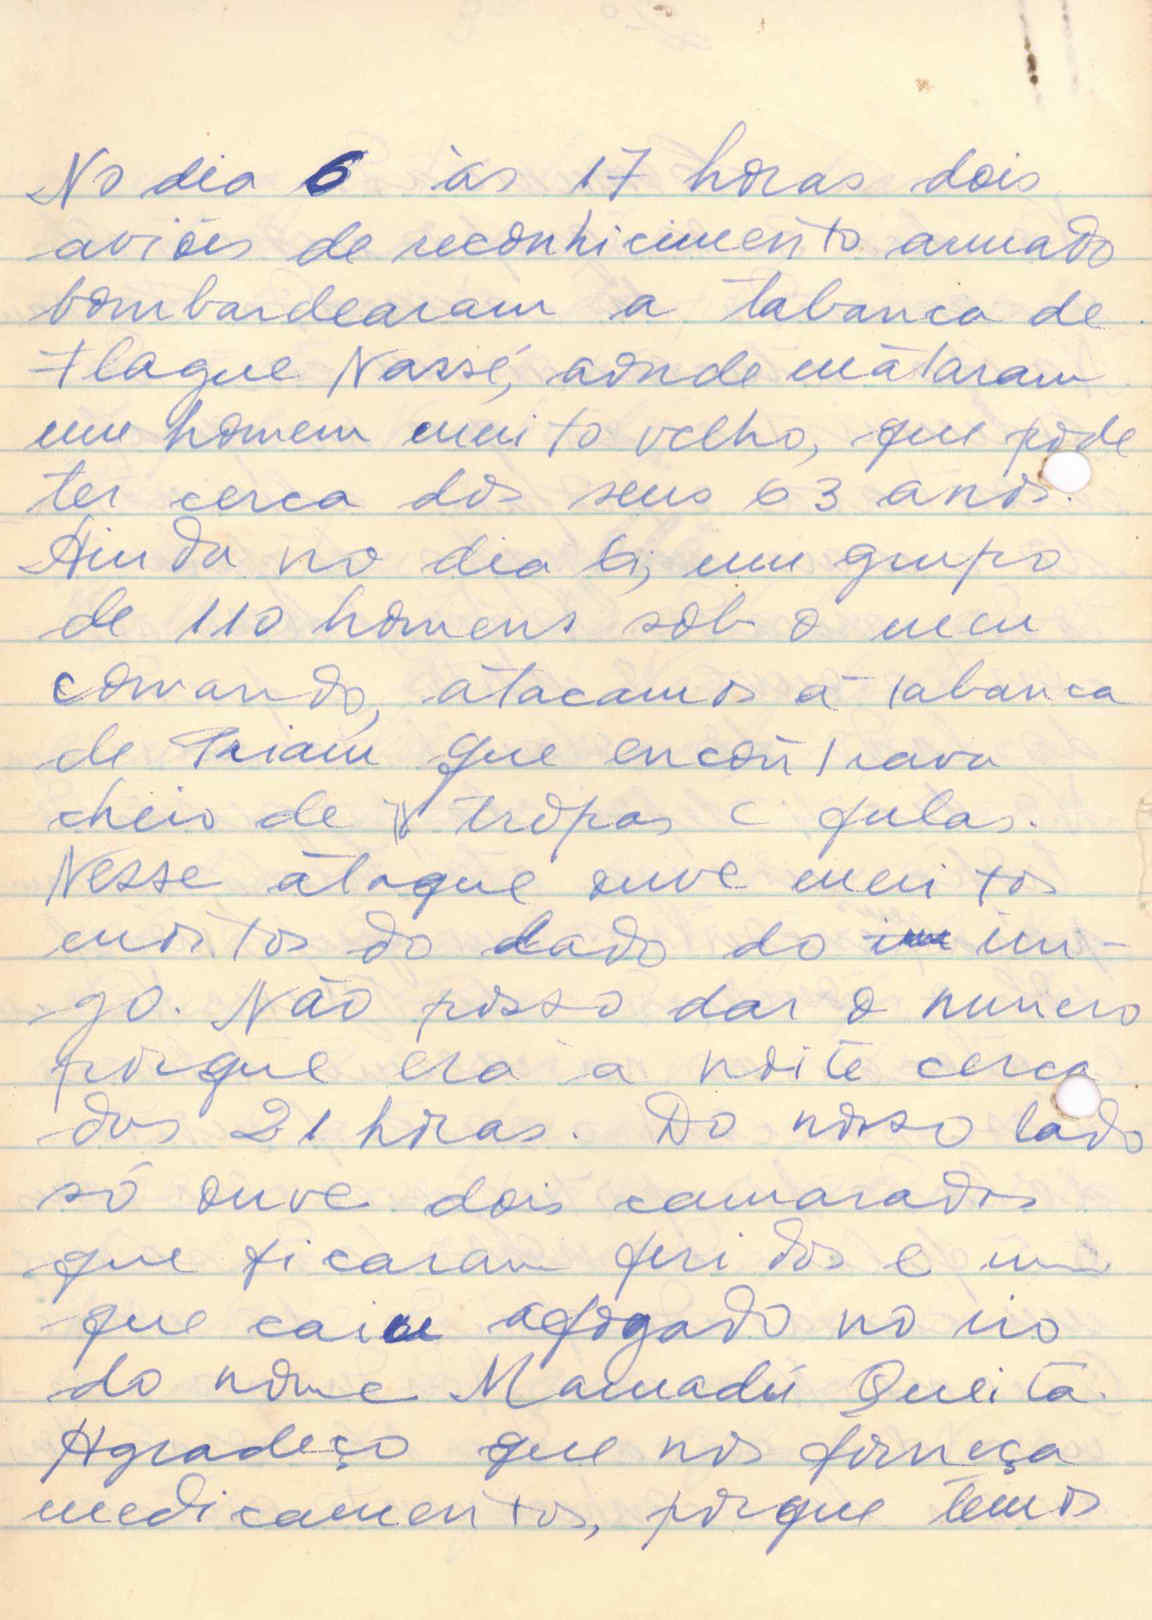 No dia 6 às 17 horas dois
aviões de reconhicimento armado
bombardearam a tabanca de
Flaque Nassé, aonde mataram
um homem muito velho, que pode
ter cerca dos seus 63 anos.
Ainda no dia 6, um grupo
de 110 homens sob o meu
comando, atacamos a tabanca
de Priam que encontrava
cheio de tropas e fulas.
Nesse ataque ouve muitos
mortos do lado do imi-
go. Não posso dar o numero
porque era a noite cerca
das 21 horas. Do nosso lado
só ouve dois camarados
que ficaram feridos e um
que caiu afogado no rio
do nome Mamadú Queita.
Agradeço que nos forneça
medicamentos, porque temos